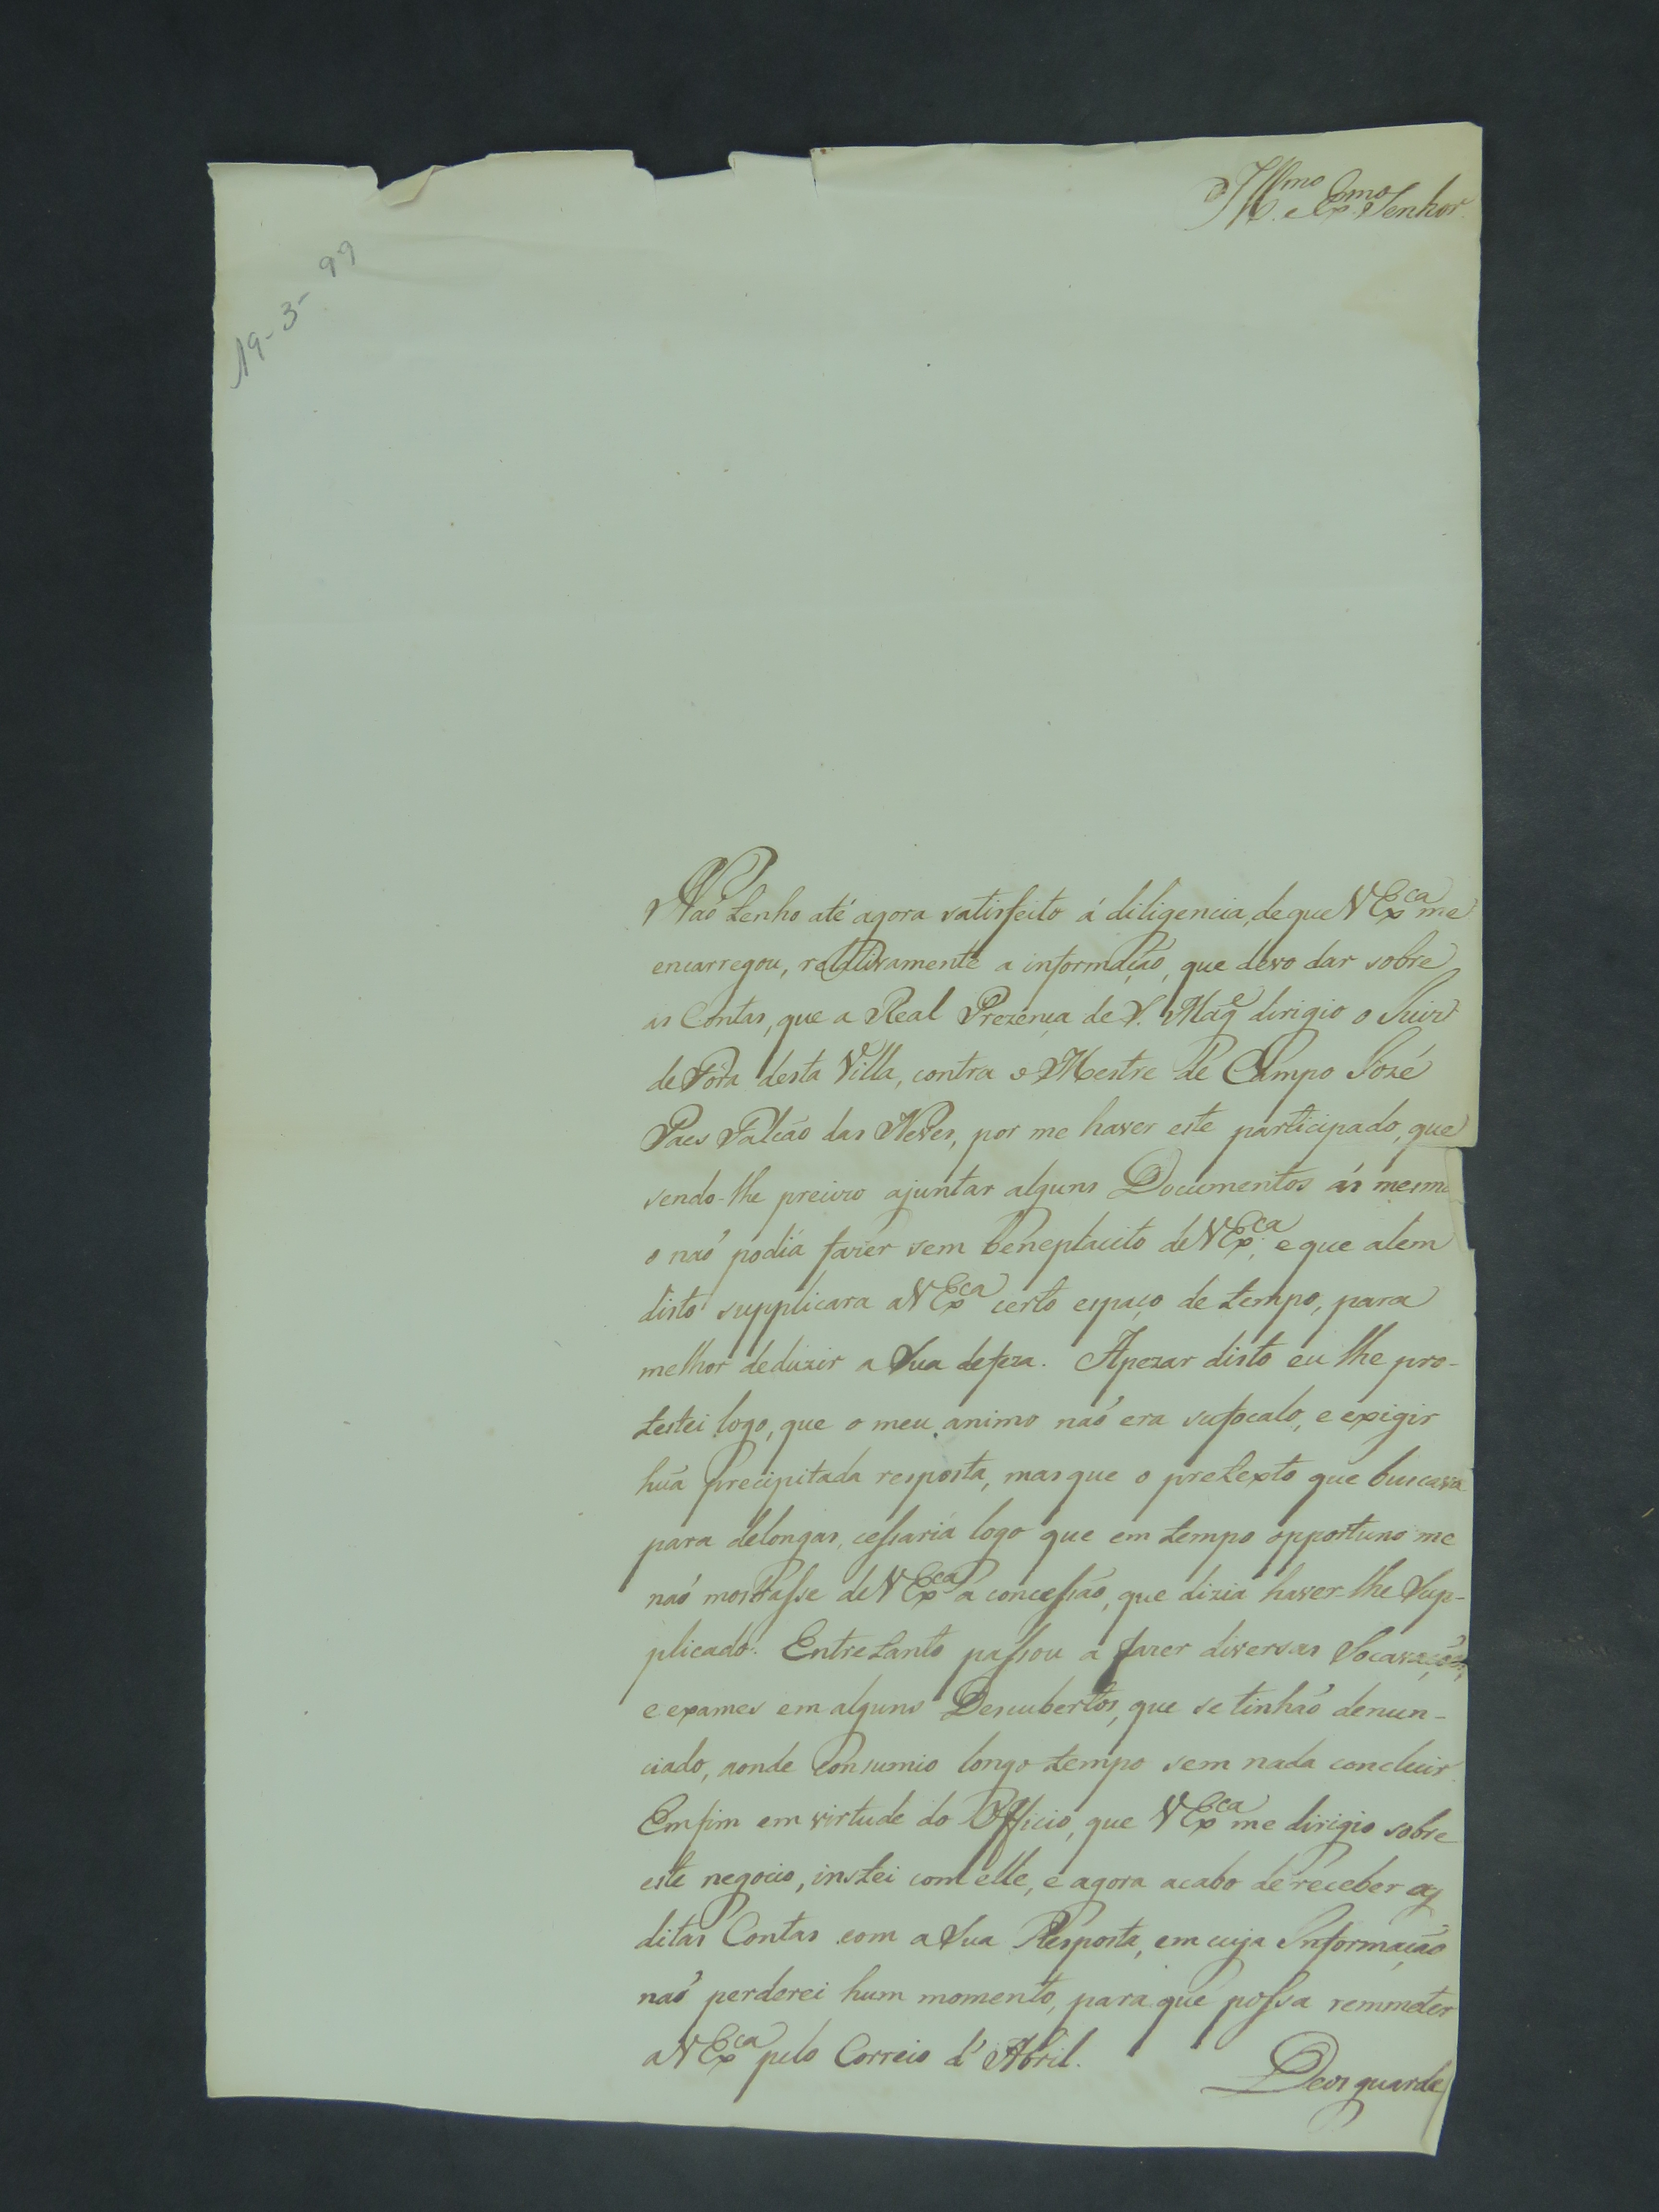 Ill.mo e Ex.mo Senhor.
19-3-99
Naõ tenho até agora satisfeito á diligencia, de que V Ex.ca me
encarregou, relativamente a informação, que devo dar sobre
as Contas, que a Real Prezença de S. Mag.e dirigio o Juiz
de Fora desta Villa, contra o Mestre de Campo Jozé
Paes Falcão das Neves, por me haver este participado, que
sendo-lhe precizo ajuntar alguns Documentos ás mesm
o naõ podia fazer sem beneplacito de V Ex.ca, e que alem
disto supplicara a V Ex.ca certo espaço de tempo, para
melhor deduzir a Sua defeza. Apezar disto eu lhe pro-
testei logo, que o meu animo naõ era sufocalo, e exigir
huã precipitada resposta, mas que o pretexto que buscava
para delongas, cessaria logo que em tempo opportuno me
naõ mostrasse de V Ex.ca a concessão, que dizia haver-lhe Sup-
plicado. Entretanto passou a fazer diversas Socavaçoẽs,
e exames em alguns Descubertos, que se tinhaõ denun-
ciado, aonde consumio longo tempo sem nada concluir.
Emfim em virtude do Officio, que V Ex.ca me dirigio sobre
este negocio, instei com elle, e agora acabo de receber as
ditas Contas com a Sua Resposta, em cuja Informação
naõ perderei hum momento, para que possa remmeter
a V Ex.ca pelo Correio d' Abril.
Deos guarde